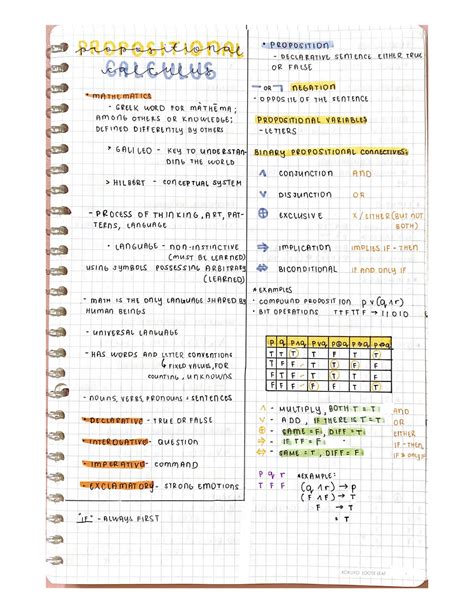 PROPOSITIONAL
CALCULUS
• MATHEMATICS
- GREEK WORD FOR MATHĒMA;
AMONG OTHERS OR KNOWLEDGE;
DEFINED DIFFERENTLY BY OTHERS
> GALILEO - KEY TO UNDERSTAN-
DING THE WORLD
> HILBERT - CONCEPTUAL SYSTEM
- PROCESS OF THINKING, ART, PAT-
TERNS, LANGUAGE
• LANGUAGE - NON-INSTINCTIVE
(MUST BE LEARNED)
USING SYMBOLS POSSESSING ARBITRARY
(LEARNED)
- MATH IS THE ONLY LANGUAGE SHAPED BY
HUMAN BEINGS
- UNIVERSAL LANGUAGE
- HAS WORDS AND LETTER CONVENTIONS
↳ FIXED VALUES, FOR
COUNTING, UNKNOWNS
- NOUNS, VERBS, PRONOUNS + SENTENCES
• DECLARATIVE - TRUE OR FALSE
• INTEROGATIVE - QUESTION
• IMPERATIVE - COMMAND
• EXCLAMATORY - STRONG EMOTIONS
"IF" - ALWAYS FIRST
• PROPOSITION
- DECLARATIVE SENTENCE EITHER TRUE
OR FALSE
OR NEGATION
• OPPOSITE OF THE SENTENCE
PROPOSITIONAL VARIABLES
- LETTERS
BINARY PROPOSITIONAL CONNECTIVES:
∧ CONJUNCTION AND
∨ DISJUNCTION OR
⊕ EXCLUSIVE X / EITHER (BUT NOT
BOTH)
⇒ IMPLICATION IMPLIES IF - THEN
⇔ BICONDITIONAL IF AND ONLY IF
*EXAMPLES
• COMPOUND PROPOSITION p ∨ (q ∧ r)
• BIT OPERATIONS TTFTF → 11010
P q p∧q p∨q p⊕q p⇒q p⇔q
T T T T F T T
T F F T T F F
F T F T T T F
F F F F F T T
∧ - MULTIPLY, BOTH T = T AND
∨ - ADD, IF THERE IS T = T OR
⊕ - SAME = F, DIFF = T EITHER
⇒ - IF TF = F IF - THEN
⇔ - SAME = T, DIFF = F IF & ONLY IF
P q r *EXAMPLE:
T F F (q ∧ r) → p
(F ∧ F) → T
F → T
• T